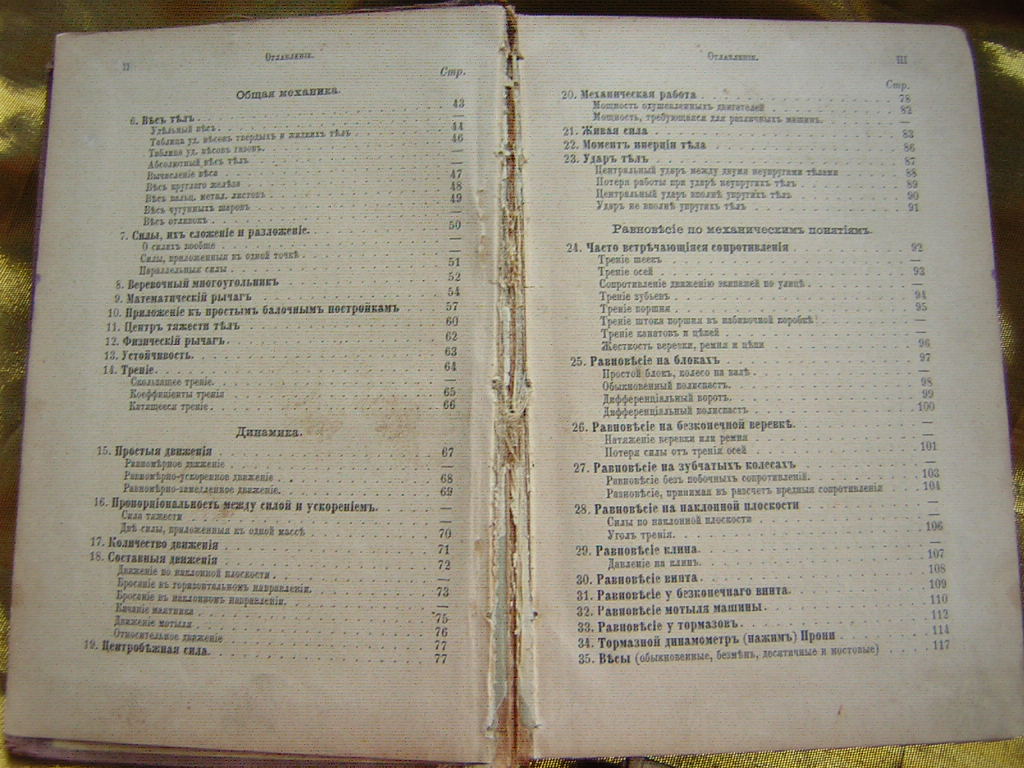 II
Оглавленіе.
Стр.
Общая механика.
6. Вѣсъ тѣлъ . . . 43
Удѣльный вѣсъ. . . . —
Таблица уд. вѣсовъ твердыхъ и жидкихъ тѣлъ . . . 44
Таблица уд. вѣсовъ газовъ. . . . 46
Абсолютный вѣсъ тѣлъ . . . —
Вычисленіе вѣса . . . —
Вѣсъ круглаго желѣза . . . 47
Вѣсъ вальц. метал. листовъ . . . 48
Вѣсъ чугунныхъ шаровъ . . . 49
Вѣсъ отливокъ . . . —
7. Силы, ихъ сложеніе и разложеніе. . . . 50
О силахъ вообще . . . —
Силы, приложенныя къ одной точкѣ . . . —
Параллельныя силы . . . 51
8. Веревочный многоугольникъ . . . 52
9. Математическій рычагъ . . . 54
10. Приложеніе къ простымъ балочнымъ постройкамъ . . . 57
11. Центръ тяжести тѣлъ . . . 60
12. Физическій рычагъ. . . . 62
13. Устойчивость. . . . 63
14. Треніе. . . . 64
Скользящее треніе. . . . —
Коеффиціенты тренія . . . 65
Катящееся треніе . . . 66
Динамика.
15. Простыя движенія . . . 67
Равномѣрное движеніе . . . —
Равномѣрно-ускоренное движеніе . . . 68
Равномѣрно-замедленное движеніе. . . . 69
16. Пропорціональность между силой и ускореніемъ. . . . —
Сила тяжести . . . —
Двѣ силы, приложенныя къ одной массѣ . . . 70
17. Количество движенія . . . 71
18. Составныя движенія . . . 72
Движеніе по наклонной плоскости . . . —
Бросаніе въ горизонтальномъ направленіи. . . . 73
Бросаніе въ наклонномъ направленіи. . . . —
Качаніе маятника . . . 75
Движеніе мотыля . . . 76
Относительное движеніе . . . 77
19. Центробѣжная сила. . . . 77
Оглавленіе.
III
Стр.
20. Механическая работа . . . 78
Мощность одушевленныхъ двигателей . . . 82
Мощность, требующаяся для различныхъ машинъ. . . . —
21. Живая сила . . . 83
22. Моментъ инерціи тѣла . . . 86
23. Ударъ тѣлъ . . . 87
Центральный ударъ между двумя неупругими тѣлами . . . 88
Потеря работы при ударѣ неупругихъ тѣлъ . . . 89
Центральный ударъ вполнѣ упругихъ тѣлъ . . . 90
Ударъ не вполнѣ упругихъ тѣлъ . . . 91
Равновѣсіе по механическимъ понятіямъ.
24. Часто встрѣчающіяся сопротивленія . . . 92
Треніе шеекъ . . . —
Треніе осей . . . 93
Сопротивленіе движенію экипажей по улицѣ . . . —
Треніе зубьевъ . . . 94
Треніе поршня . . . 95
Треніе штока поршня въ набивочной коробкѣ . . . —
Треніе канатовъ и цѣпей . . . —
Жесткость веревки, ремня и цѣпи . . . 96
25. Равновѣсіе на блокахъ . . . 97
Простой блокъ, колесо на валѣ . . . —
Обыкновенный полиспастъ. . . . 98
Дифференціальный воротъ. . . . 99
Дифференціальный полиспастъ . . . 100
26. Равновѣсіе на безконечной веревкѣ. . . . —
Натяженіе веревки или ремня . . . —
Потеря силы отъ тренія осей . . . 101
27. Равновѣсіе на зубчатыхъ колесахъ . . . —
Равновѣсіе безъ побочныхъ сопротивленій. . . . 103
Равновѣсіе, принимая въ разсчетъ вредныя сопротивленія . . . 104
28. Равновѣсіе на наклонной плоскости . . . —
Силы по наклонной плоскости . . . —
Уголъ тренія. . . . 106
29. Равновѣсіе клина. . . . —
Давленіе на клинъ. . . . 107
30. Равновѣсіе винта. . . . 108
31. Равновѣсіе у безконечнаго винта. . . . 109
32. Равновѣсіе мотыля машины. . . . 110
33. Равновѣсіе у тормазовъ. . . . 112
34. Тормазной динамометръ (нажимъ) Прони . . . 114
35. Вѣсы (обыкновенные, безмѣнъ, десятичные и мостовые) . . . 117